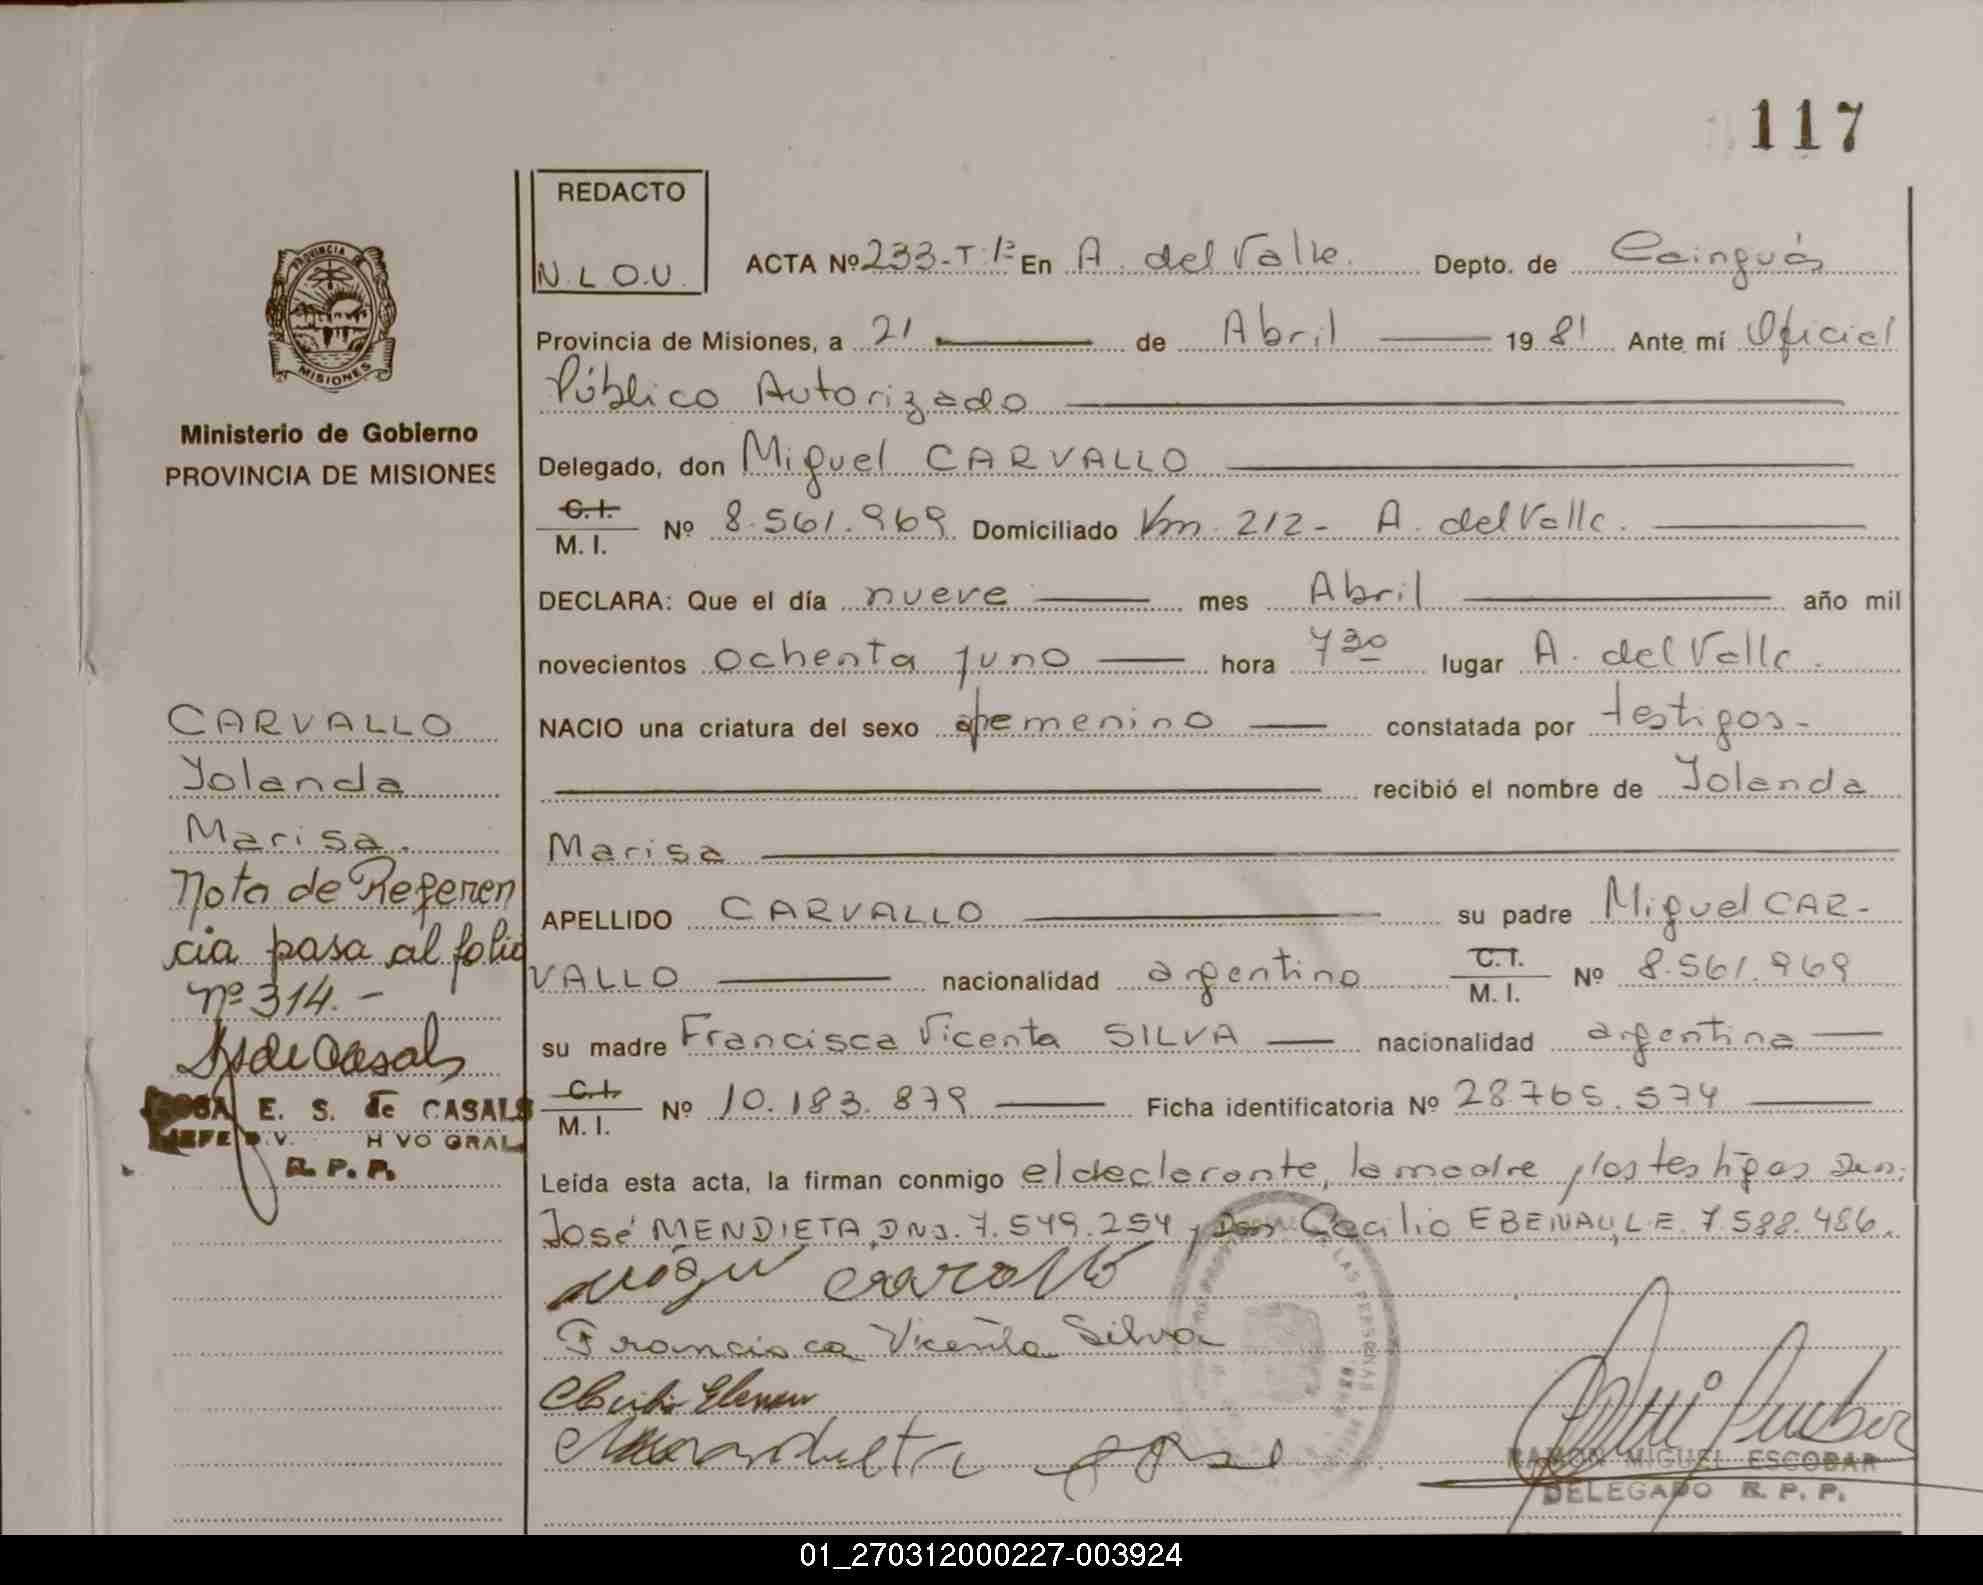 117
REDACTO
N.L.O.U.
ACTA Nº 233-T.1º En A. del Valle. Depto. de Cainguás
Provincia de Misiones, a 21 de Abril 1981 Ante mí Oficial
Público Autorizado
Delegado, don Miguel CARVALLO
C.I. M. I. Nº 8.561.969 Domiciliado Km. 212- A. del Valle.
DECLARA: Que el día nueve mes Abril año mil
novecientos ochenta y uno hora 7 30 lugar A. del Valle.
NACIO una criatura del sexo femenino constatada por testigos-
recibió el nombre de Yolanda
Marisa
APELLIDO CARVALLO su padre Miguel CAR-
VALLO nacionalidad argentino C.I. M. I. Nº 8.561.969
su madre Francisca Vicenta SILVA nacionalidad argentina
C.I. M. I. Nº 10.183.879 Ficha identificatoria Nº 28.765.574
Leída esta acta, la firman conmigo el declarante, la madre y los testigos Don:
José MENDIETA, DNI. 7.549.254 y Don Cecilio EBENAU, L.E. 7.588.486.
Francisca Vicenta Silva
RAMON MIGUEL ESCOBAR
DELEGADO R. P. P.
PROVINCIA DE
MISIONES
Ministerio de Gobierno
PROVINCIA DE MISIONES
CARVALLO
Yolanda
Marisa.
Nota de Referen
cia pasa al folio
nº 314.-
ROSA E. S. de CASALS
JEFE DIV. HIVO GRAL
R. P. P.
01_270312000227-003924